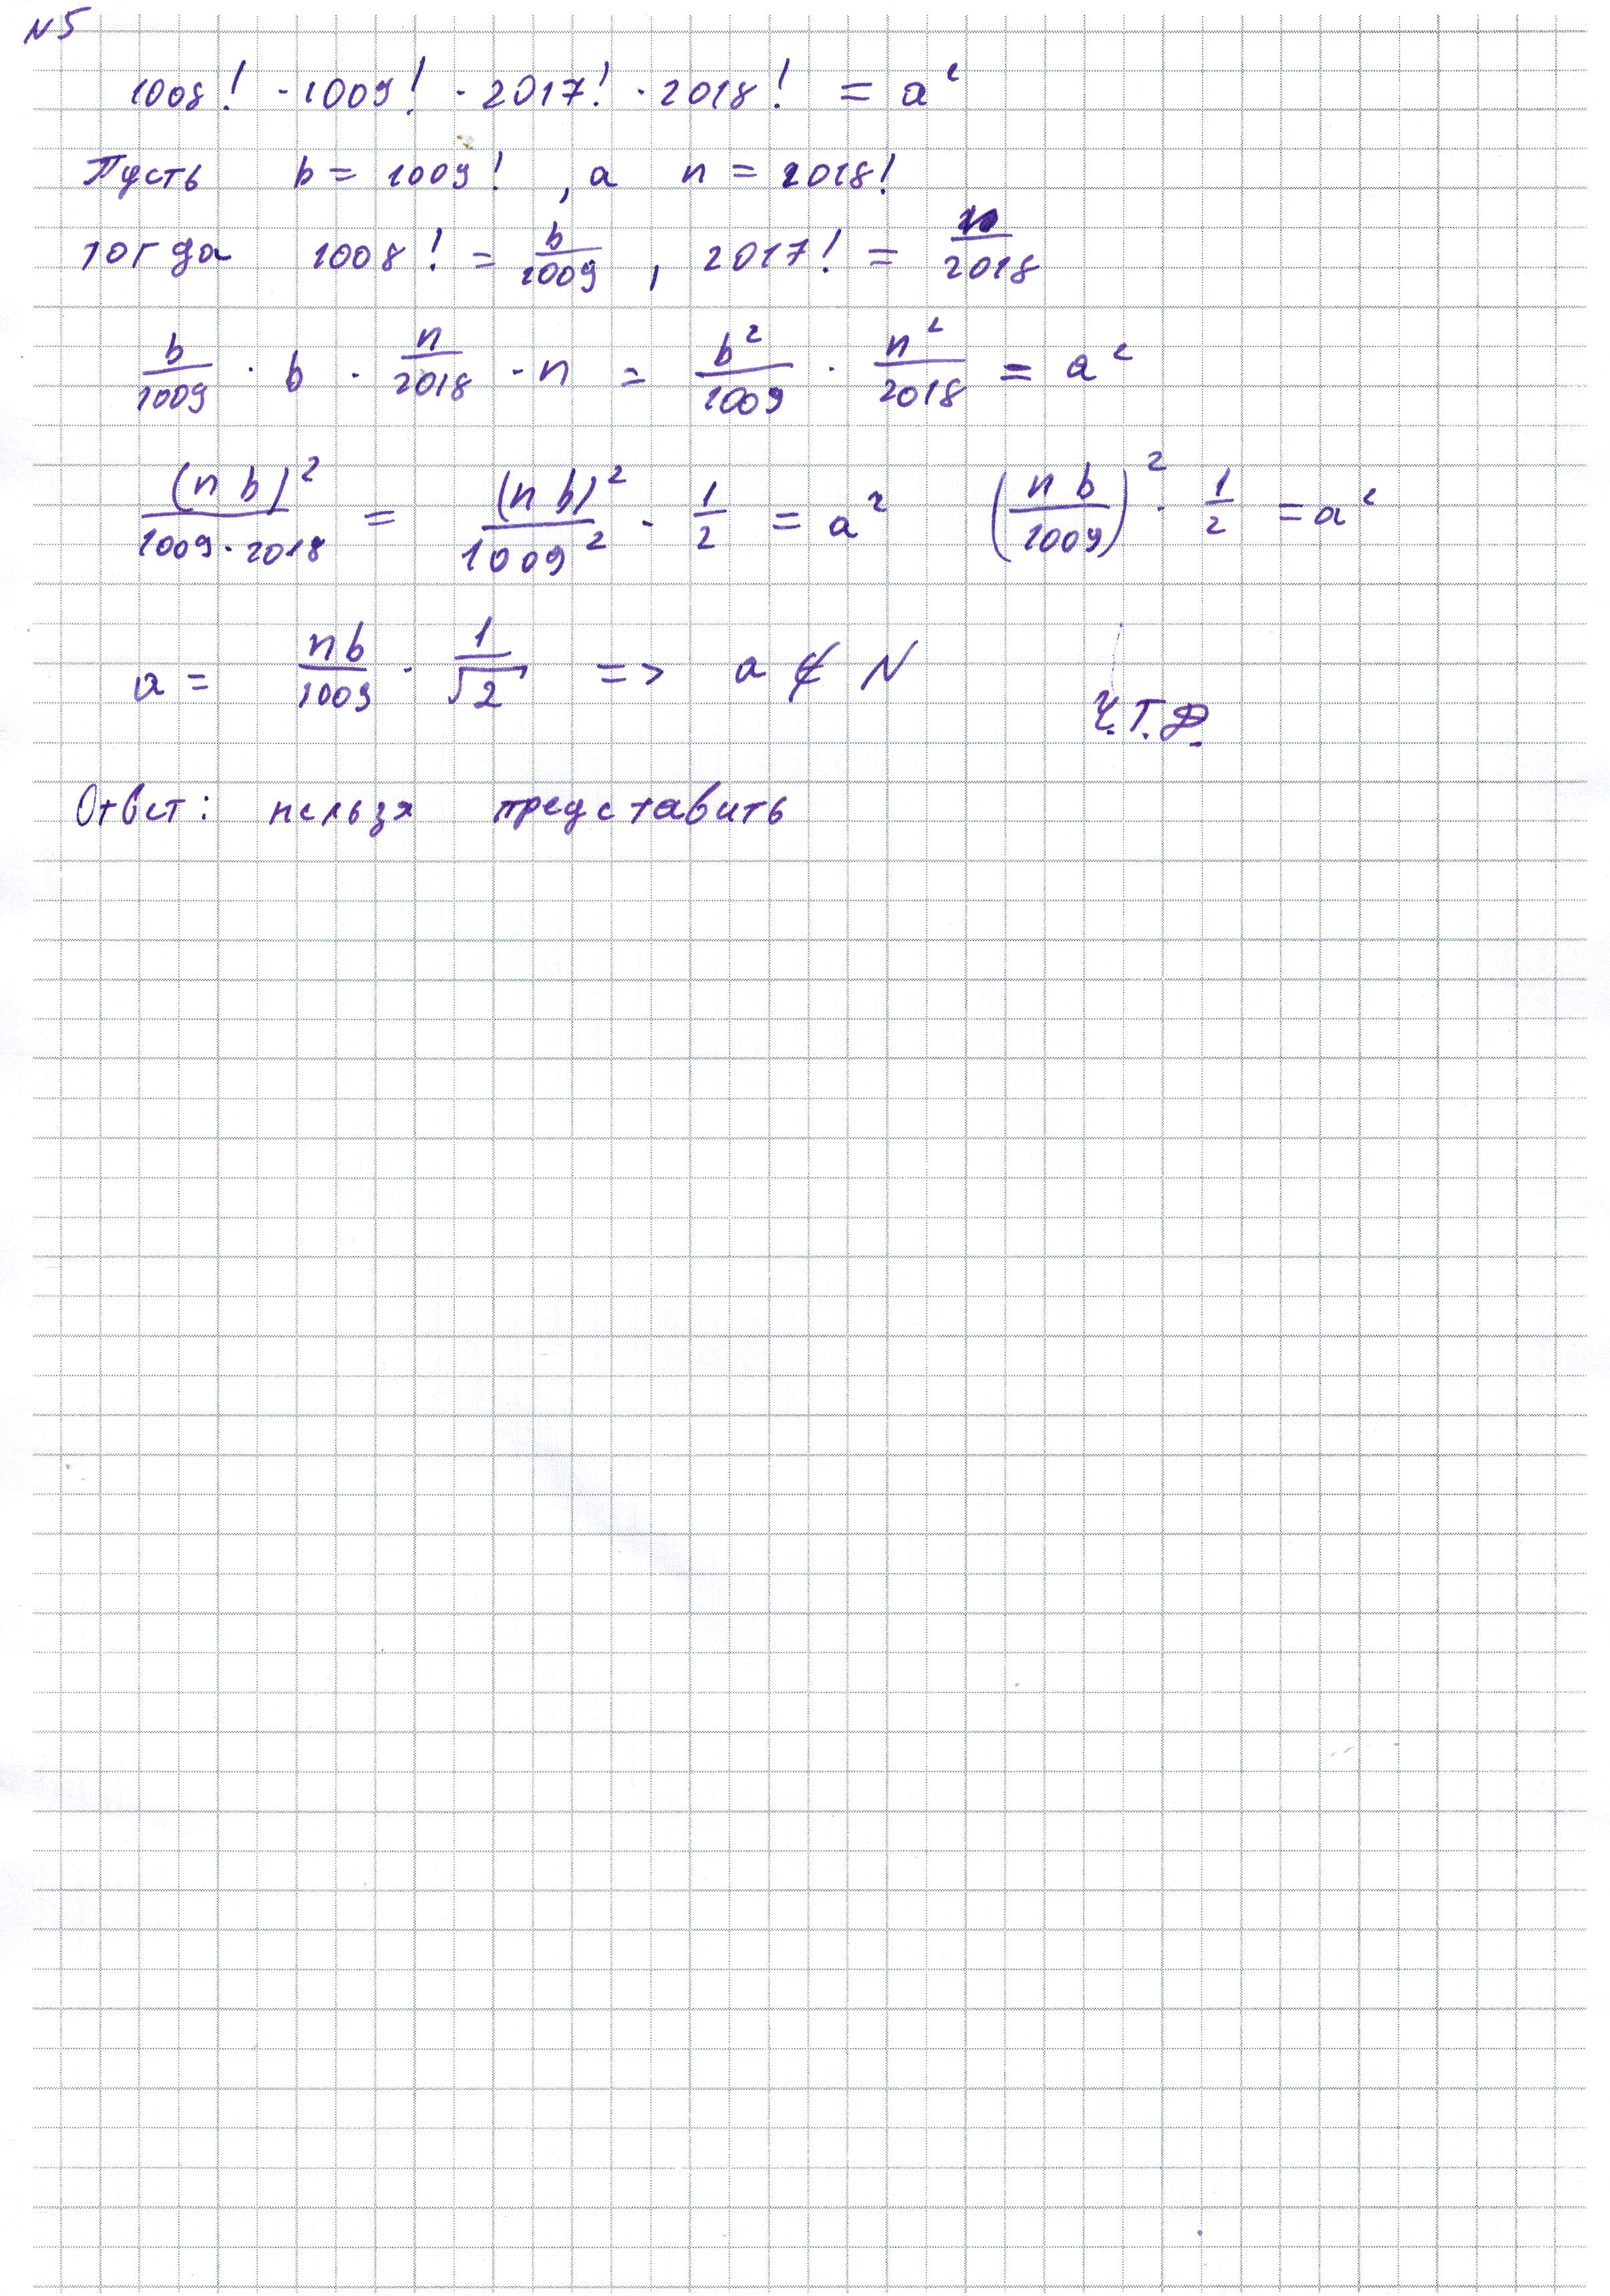 N5
1008! · 1009! · 2017! · 2018! = a²
Пусть b = 1009! , а n = 2018!
тогда 1008! = b/1009 , 2017! = n/2018
b/1009 · b · n/2018 · n = b²/1009 · n²/2018 = a²
(n b)²/(1009 · 2018) = (n b)²/1009² · 1/2 = a² (n b/1009)² · 1/2 = a²
a = nb/1009 · 1/√2 => a ∉ N
Ч.Т.Д.
Ответ: нельзя представить